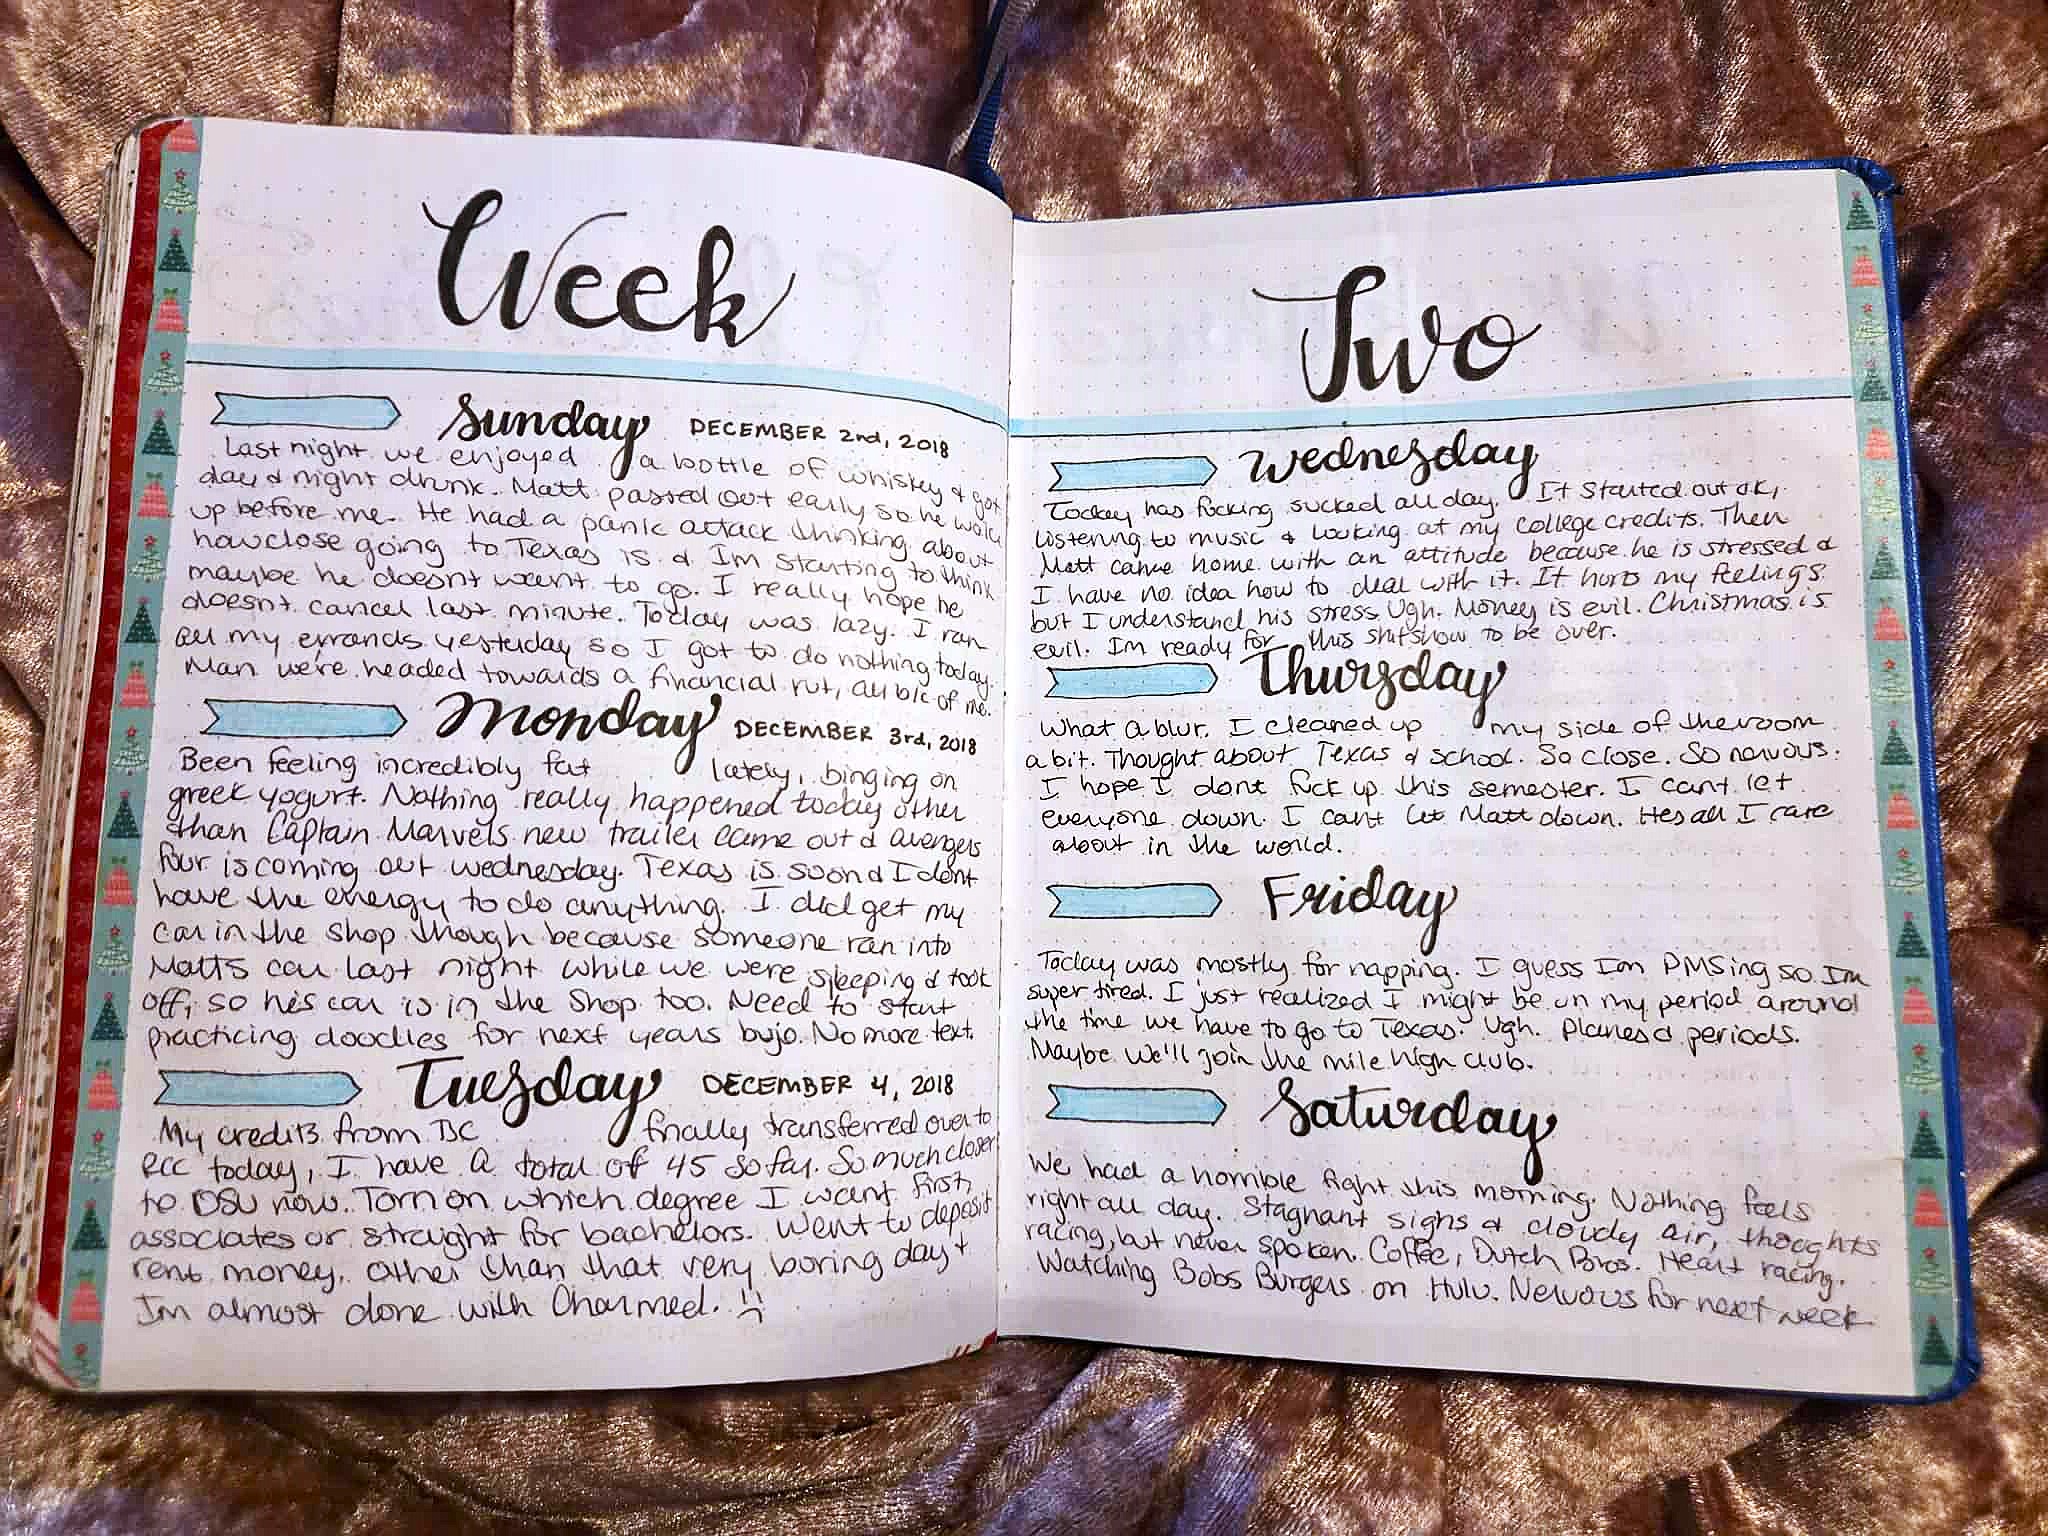 Week
Sunday DECEMBER 2nd, 2018
Last night we enjoyed a bottle of whiskey & got
day & night drunk. Matt passed out early so he woke
up before me. He had a panic attack thinking about
how close going to Texas is & Im starting to think
maybe he doesnt want to go. I really hope he
doesnt cancel last minute. Today was lazy. I ran
all my errands yesterday so I got to do nothing today.
Man were headed towards a financial rut, all b/c of me.
Monday DECEMBER 3rd, 2018
Been feeling incredibly fat lately, binging on
greek yogurt. Nothing really happened today other
than Captain Marvels new trailer came out & avengers
four is coming out wednesday. Texas is soon & I dont
have the energy to do anything. I did get my
car in the shop though because someone ran into
Matts car last night while we were sleeping & took
off, so his car is in the shop too. Need to start
practicing doodles for next years bujo. No more text.
Tuesday DECEMBER 4, 2018
My credits from BC finally transferred over to
RCC today, I have a total of 45 so far. So much closer
to OSU now. Torn on which degree I want first,
associates or straight for bachelors. Went to deposit
rent money. Other than that very boring day &
Im almost done with Charmed. :(
Two
Wednesday
Today has fucking sucked all day. It started out ok,
listening to music & looking at my college credits. Then
Matt came home with an attitude because he is stressed &
I have no idea how to deal with it. It hurts my feelings
but I understand his stress. Ugh. Money is evil. Christmas is
evil. Im ready for this shitshow to be over.
Thursday
What a blur. I cleaned up my side of the room
a bit. Thought about Texas & school. So close. So nervous.
I hope I dont fuck up this semester. I cant let
everyone down. I cant let Matt down. Hes all I care
about in the world.
Friday
Today was mostly for napping. I guess Im PMSing so Im
super tired. I just realized I might be on my period around
the time we have to go to Texas. Ugh. Planes & periods.
Maybe we'll join the mile high club.
Saturday
We had a horrible fight this morning. Nothing feels
right all day. Stagnant sighs & cloudy air, thoughts
racing, but never spoken. Coffee, Dutch Bros. Heart racing.
Watching Bobs Burgers on Hulu. Nervous for next week